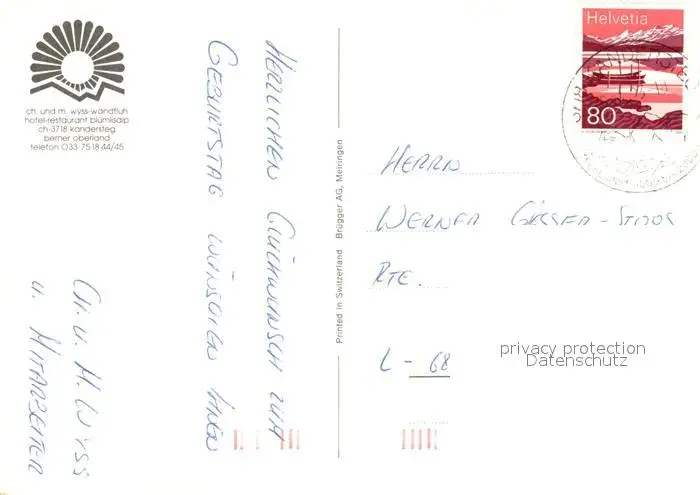 ch. und m. wyss-wandfluh
hotel-restaurant blümlisalp
ch-3718 kandersteg
berner oberland
telefon 033 75 18 44/45
HERZLICHEN GLÜCKWUNSCH ZUM
GEBURTSTAG WÜNSCHEN IHNEN
CH. U. M. WYSS
U. MITARBEITER
Printed in Switzerland Brügger AG, Meiringen
Helvetia
80
HERRN
WERNER
RTE.
L - 68
privacy protection
Datenschutz